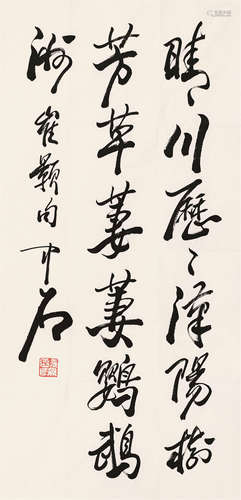 晴〻川歷〻漢陽樹
芳草萋萋鸚鵡
洲崔顥句中石